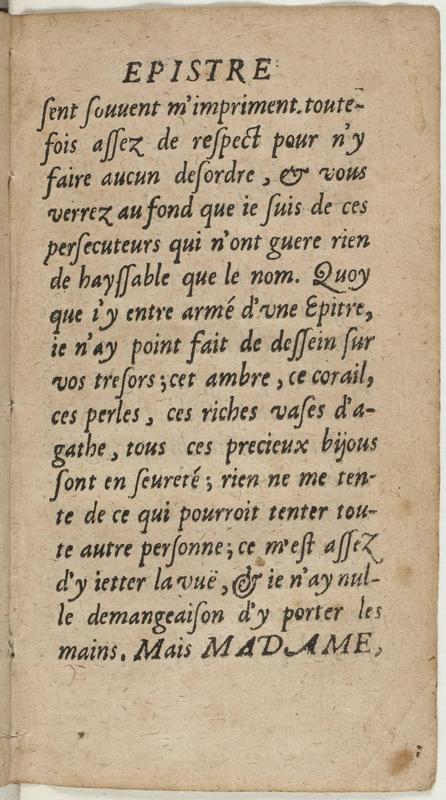 EPISTRE
ſent ſouuent m'impriment toute-
fois aſſez de reſpect pour n'y
faire aucun deſordre, & vous
verrez au fond que ie ſuis de ces
perſecuteurs qui n'ont guere rien
de hayſſable que le nom. Quoy
que i'y entre armé d'vne Epitre,
ie n'ay point fait de deſſein ſur
vos treſors; cet ambre, ce corail,
ces perles, ces riches vaſes d'a-
gathe, tous ces precieux bijous
ſont en ſeureté; rien ne me ten-
te de ce qui pourroit tenter tou-
te autre perſonne; ce m'eſt aſſez
d'y ietter la vuë, & ie n'ay nul-
le demangeaiſon d'y porter les
mains. Mais MADAME,